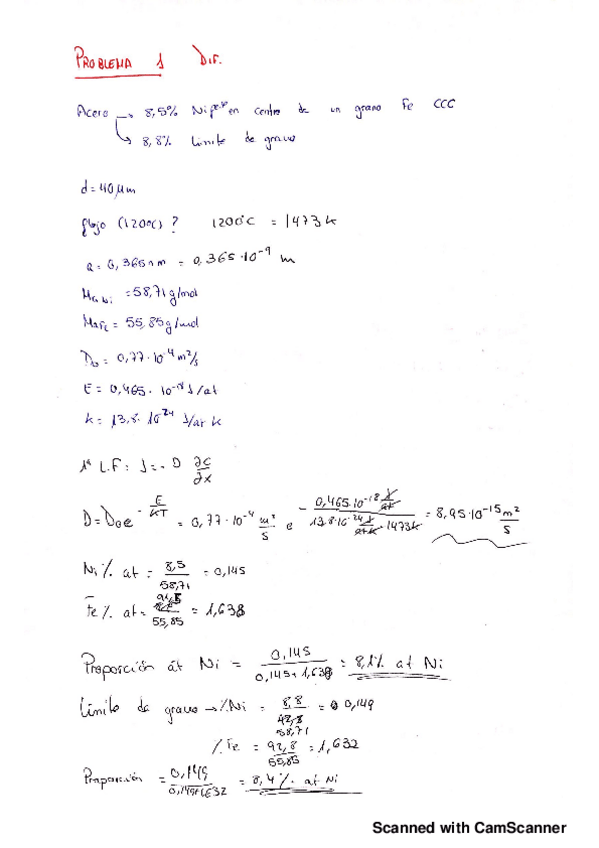 PROBLEMA 1 DIF.
Acero → 8,5% Ni peso en centro de un grano Fe CCC
↳ 8,8% límite de grano
d = 40 μm
flujo (1200C)? 1200°C = 1473 k
a = 0,365 nm = 0,365·10⁻⁹ m
Ma Ni = 58,71 g/mol
Ma Fe = 55,85 g/mol
D₀ = 0,77·10⁻⁴ m²/s
E = 0,465·10⁻¹⁸ J/at
k = 13,8·10⁻²⁴ J/at k
1ª L.F: J = - D ∂c/∂x
D = D₀ e^(-E/KT) = 0,77·10⁻⁴ m²/s e^(-0,465·10⁻¹⁸ J/at / 13,8·10⁻²⁴ J/at·k · 1473k) = 8,95·10⁻¹⁵ m²/s
Ni % at = 8,5/58,71 = 0,145
Fe % at = 91,5/55,85 = 1,638
Proporción at Ni = 0,145/0,145+1,638 = 8,1% at Ni
Límite de grano → %Ni = 8,8/58,71 = 0,149
% Fe = 92,8/55,85 = 1,632
Proporción = 0,149/0,149+1,632 = 8,4% at Ni
Scanned with CamScanner